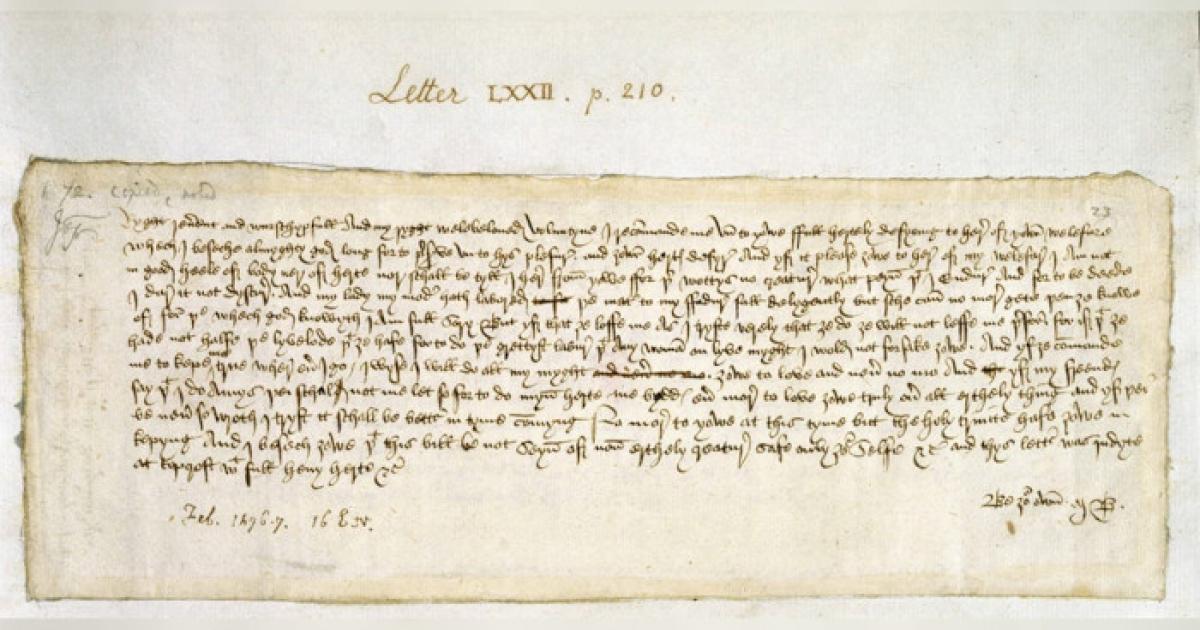 Letter LXXII. p. 210.
72. copied,
23
Ryght reuerent and wurschypfull And my ryght welebeloued Voluntyne I recomande me vn to yowe ffull hertely desyring to here of yowr welefare
whech I beseche almyghty god long for to preserve vn to hys plesure and yowr hertys desyre And yf it please yowe to here of my welefare I am not
in good heele of body ner of herte nor schall be tyll I here from yowe ffor þer wottys no creature what peyn þt I endure And for to be deede
I dare it not dyscure And my lady my moder hath labored þe mater to my ffadure full delygently but sche can no more gete þen ye knowe
of for þe whech god knowyth I am full sory But yf that ye loffe me as I tryste verely that ye do ye will not leffe me þerfor for if þt ye
hade not halfe þe lyvelode þt ye hafe for to do þe grettyst labure þt any woman on lyve myght I wold not forsake yowe And yf ye commande
me to kepe me true where euer I go i wyse I will do all my myght yowe to love and neuer no mo And yf my freendys
say þt I do Amys þei schal not me let so for to do myn herte me bydds euer more to love yowe truly ouer all erthely thing and yf þei
be neuer so wroth I tryst it schall be bettur in tyme commyng No more to yowe at this tyme but the holy trinite hafe yowe in
kepyng And I besech yowe þt this bill be not seyn of non erthely creature safe only yor Selfe &c and thys lettur was indyte
at Topcroft wt full heuy herte &c
Be yor own M B.
Feb. 1476-7. 16 E.